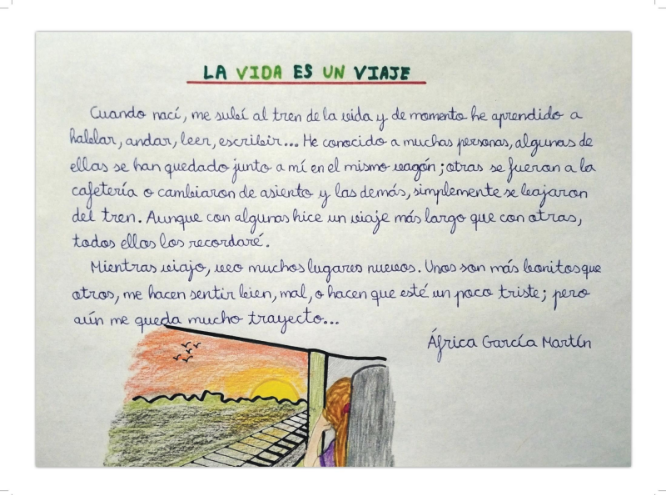 LA VIDA ES UN VIAJE
Cuando nací, me subí al tren de la vida y de momento he aprendido a
hablar, andar, leer, escribir... He conocido a muchas personas, algunas de
ellas se han quedado junto a mí en el mismo vagón; otras se fueron a la
cafetería o cambiaron de asiento y las demás, simplemente se bajaron
del tren. Aunque con algunas hice un viaje más largo que con otras,
todas ellas los recordaré.
Mientras viajo, veo muchos lugares nuevos. Unos son más bonitos que
otros, me hacen sentir bien, mal, o hacen que esté un poco triste; pero
aún me queda mucho trayecto...
África García Martín